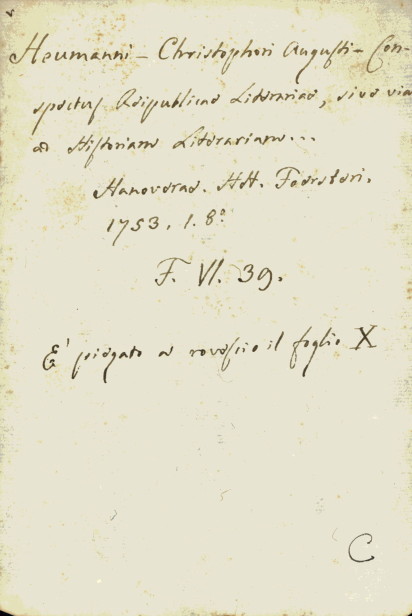 Heumanni – Christophori Augusti – Con-
spectus Reipublicae Literariae, sive via
ad Historiam Literariam...
Hanoverae. HH. Foersteri.
1753. 1. 8º
F. VI. 39.
E' piegato a rovescio il foglio X
C